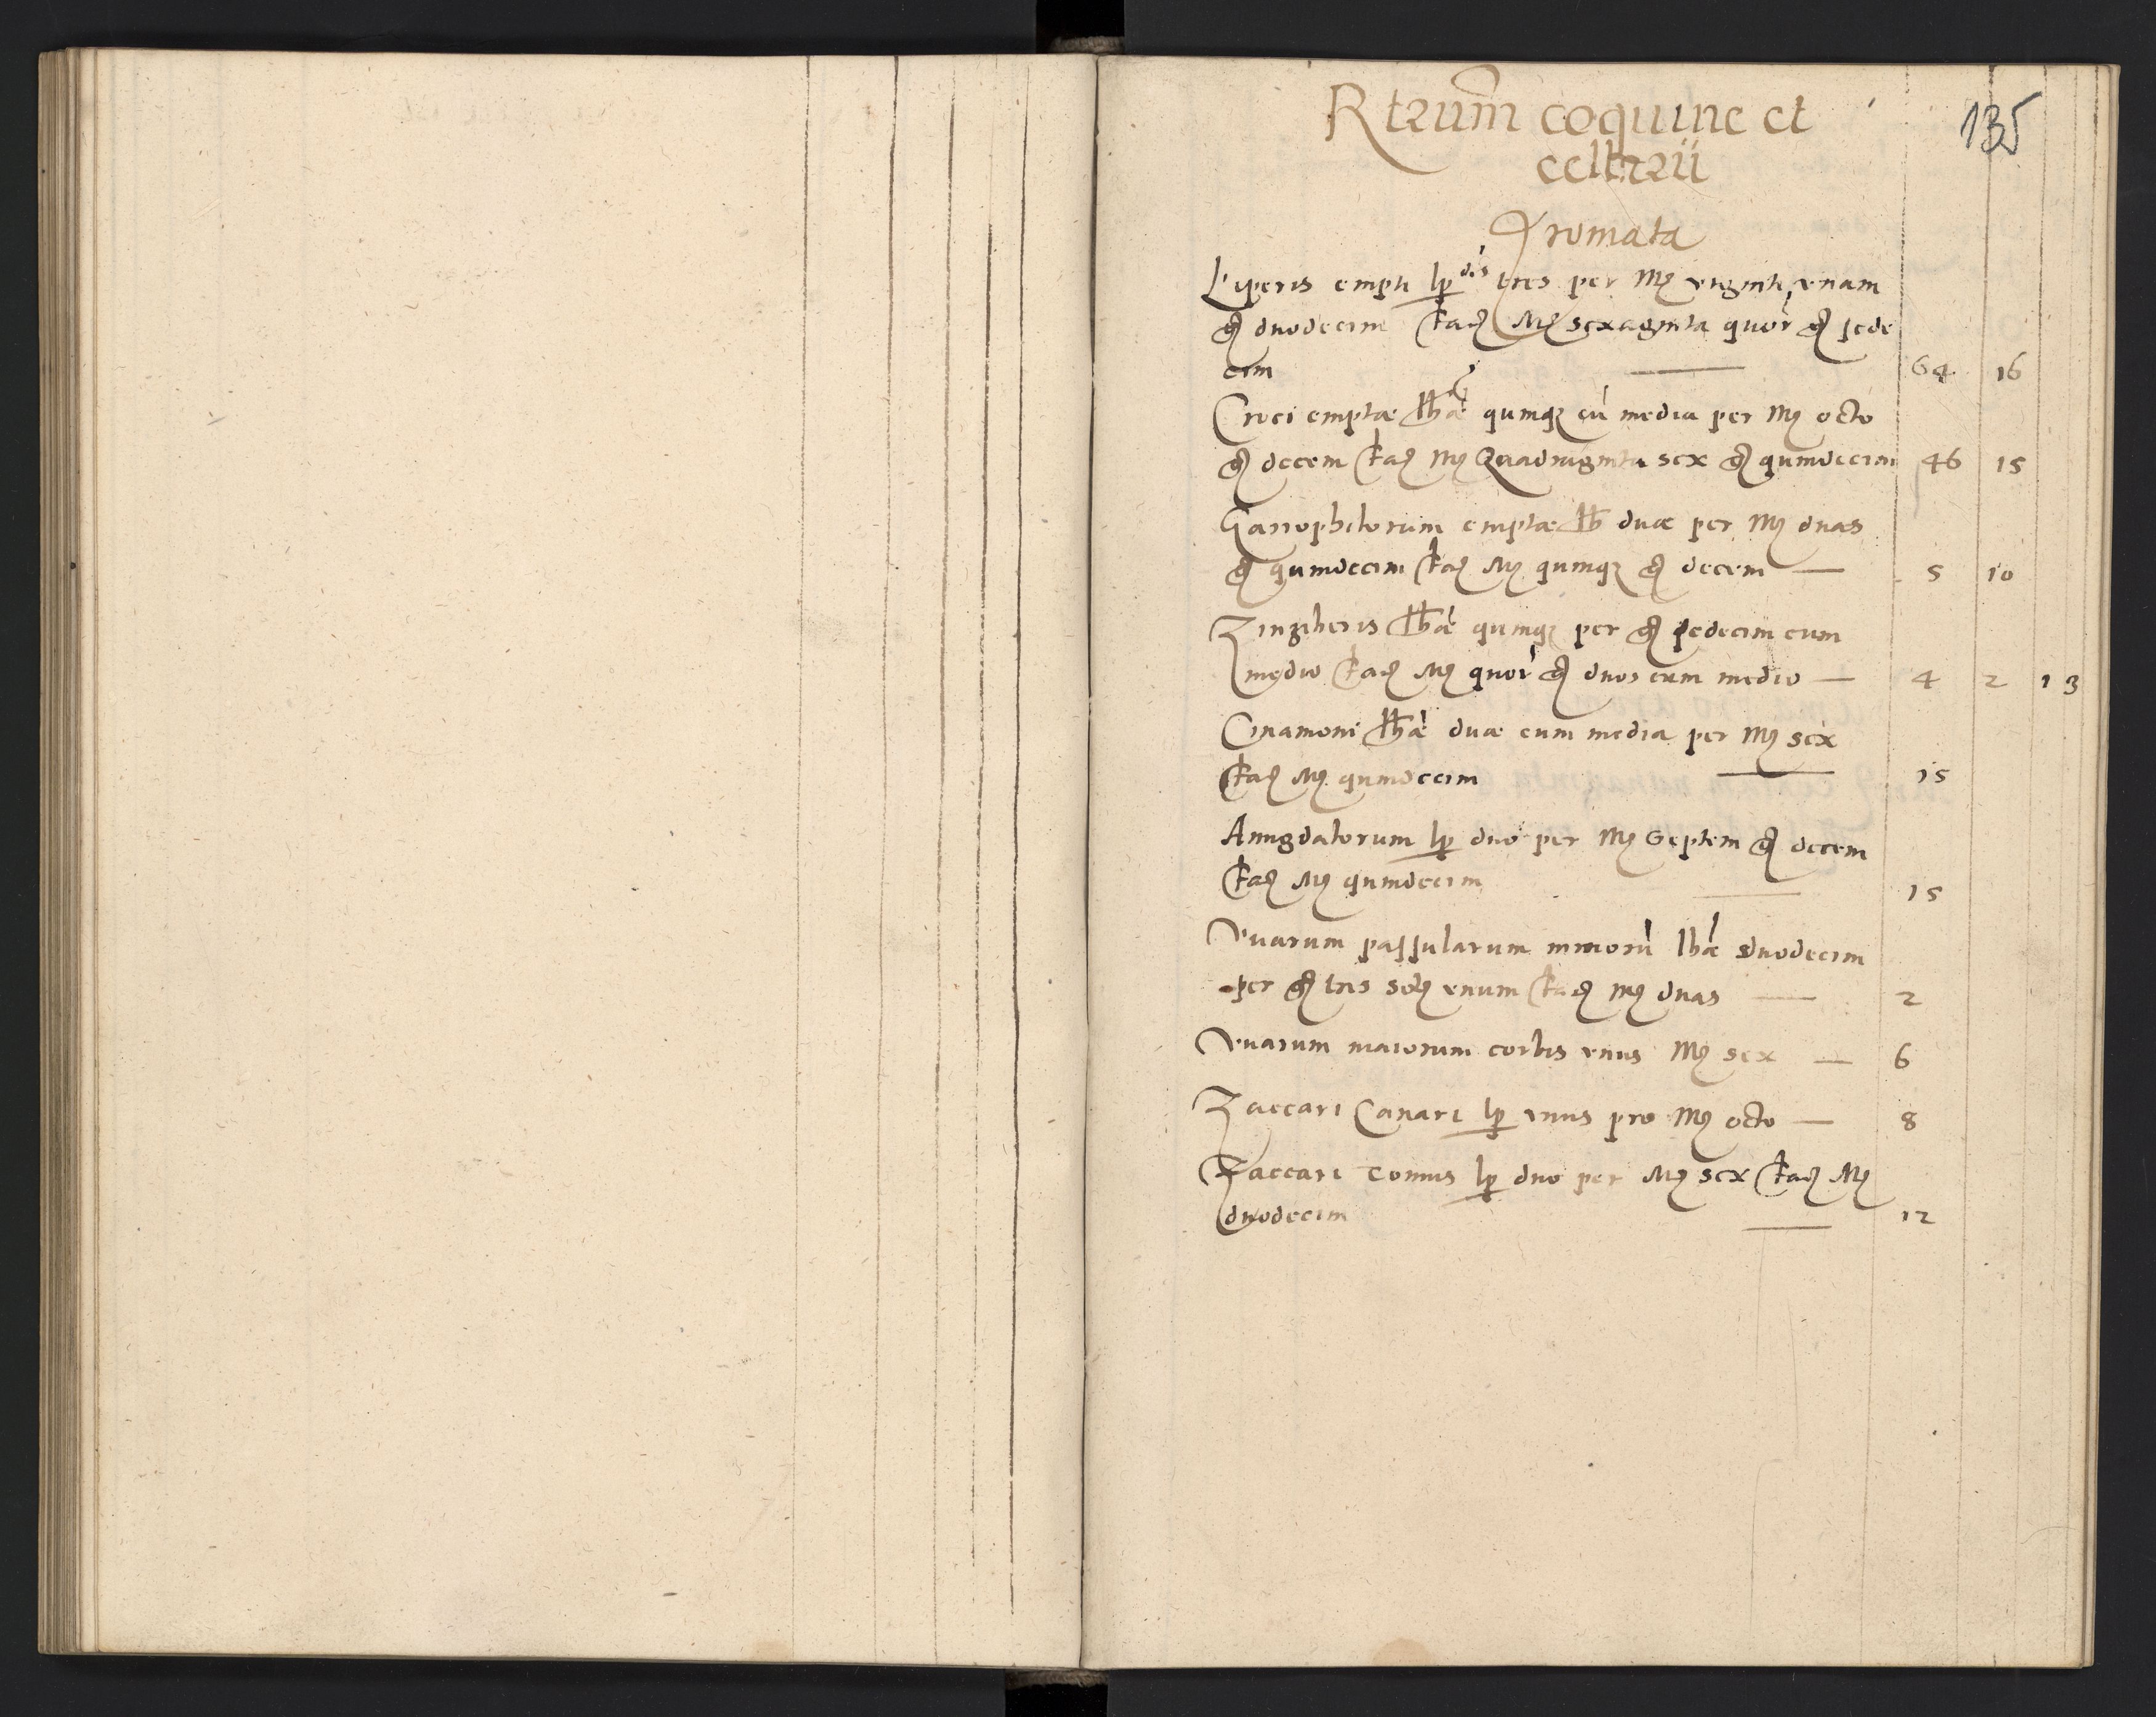 Rerum coquine et
cellarii
135
Aromata
Piperis empti lp dis tres per Mg viginti vnam
gr duodecim facit Mg sexaginta quor gr sede
cim — 64 16
Croci emptæ lbæ quinqȝ cu media per Mg octo
gr decem facit Mg Quadraginta sex gr quindecim 46 15
Gariophilorum emptæ lb duæ per Mg duas
gr quindecim facit Mg quinqȝ gr decem — 5 10
Zinziberis lbæ quinqȝ per gr sedecim cum
medio facit Mg quor gr duos cum medio — 4 2 1 3
Cinamoni lbæ duæ cum media per Mg sex
facit Mg quindecim — 15
Amigdalorum lp duo per Mg septem gr decem
facit Mg quindecim — 15
Vuarum passularum minoru lbæ duodecim
per gr tres sol vnum facit Mg duas — 2
Vuarum maiorum corbis vnus Mg sex — 6
Zaccari Canari lp vnus pro Mg octo — 8
Zaccari Tomus lp duo per Mg sex facit Mg
duodecim — 12